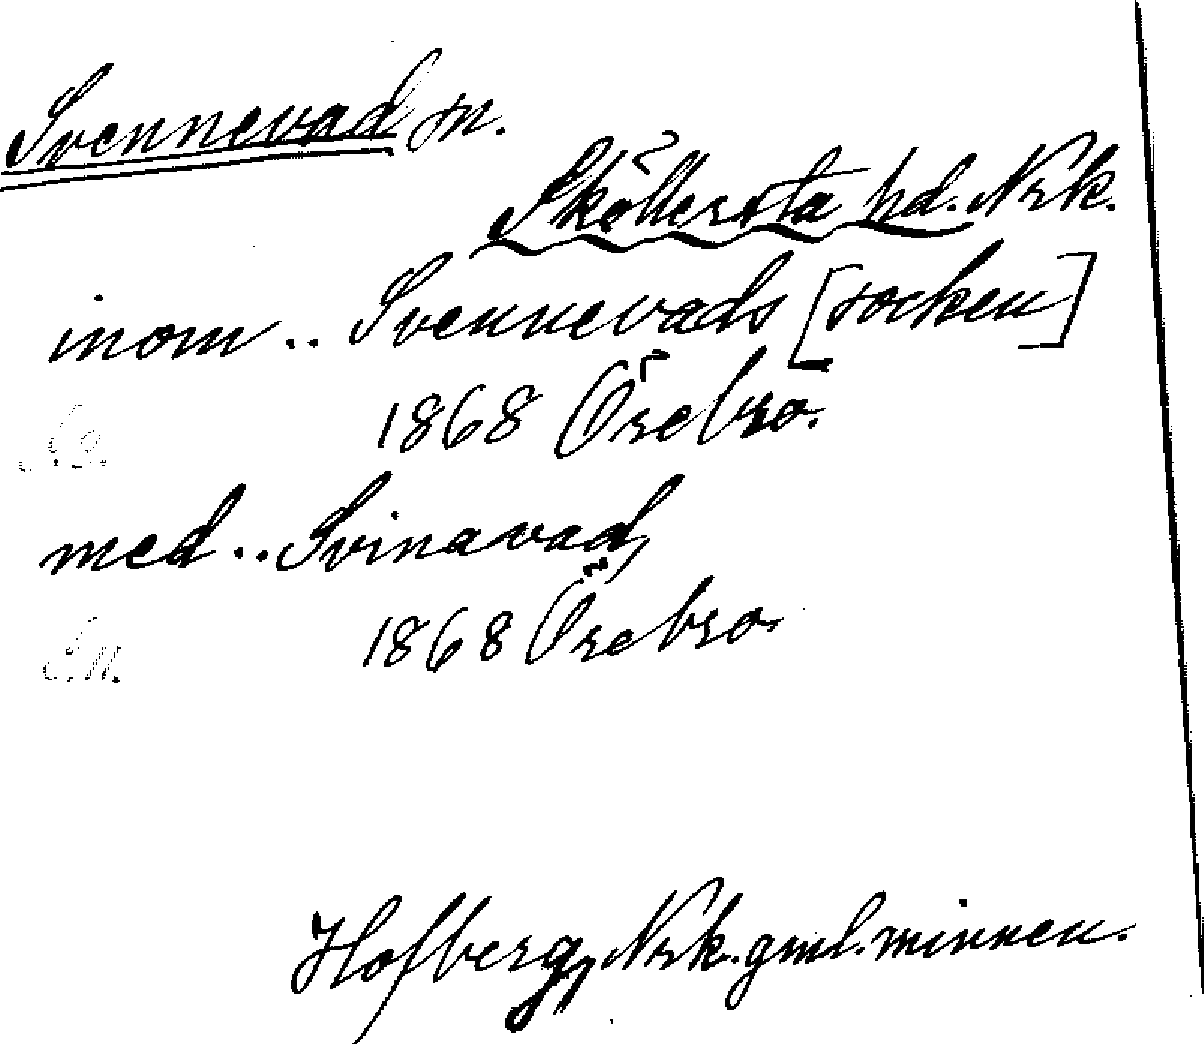 Svennevad sn.
Sköllersta hd. Nrk.
inom .. Svennevads [socken]
1868 Örebro.
med .. Svinavad,
1868 Örebro.
Hofberg, Nrk. gml. minnen.